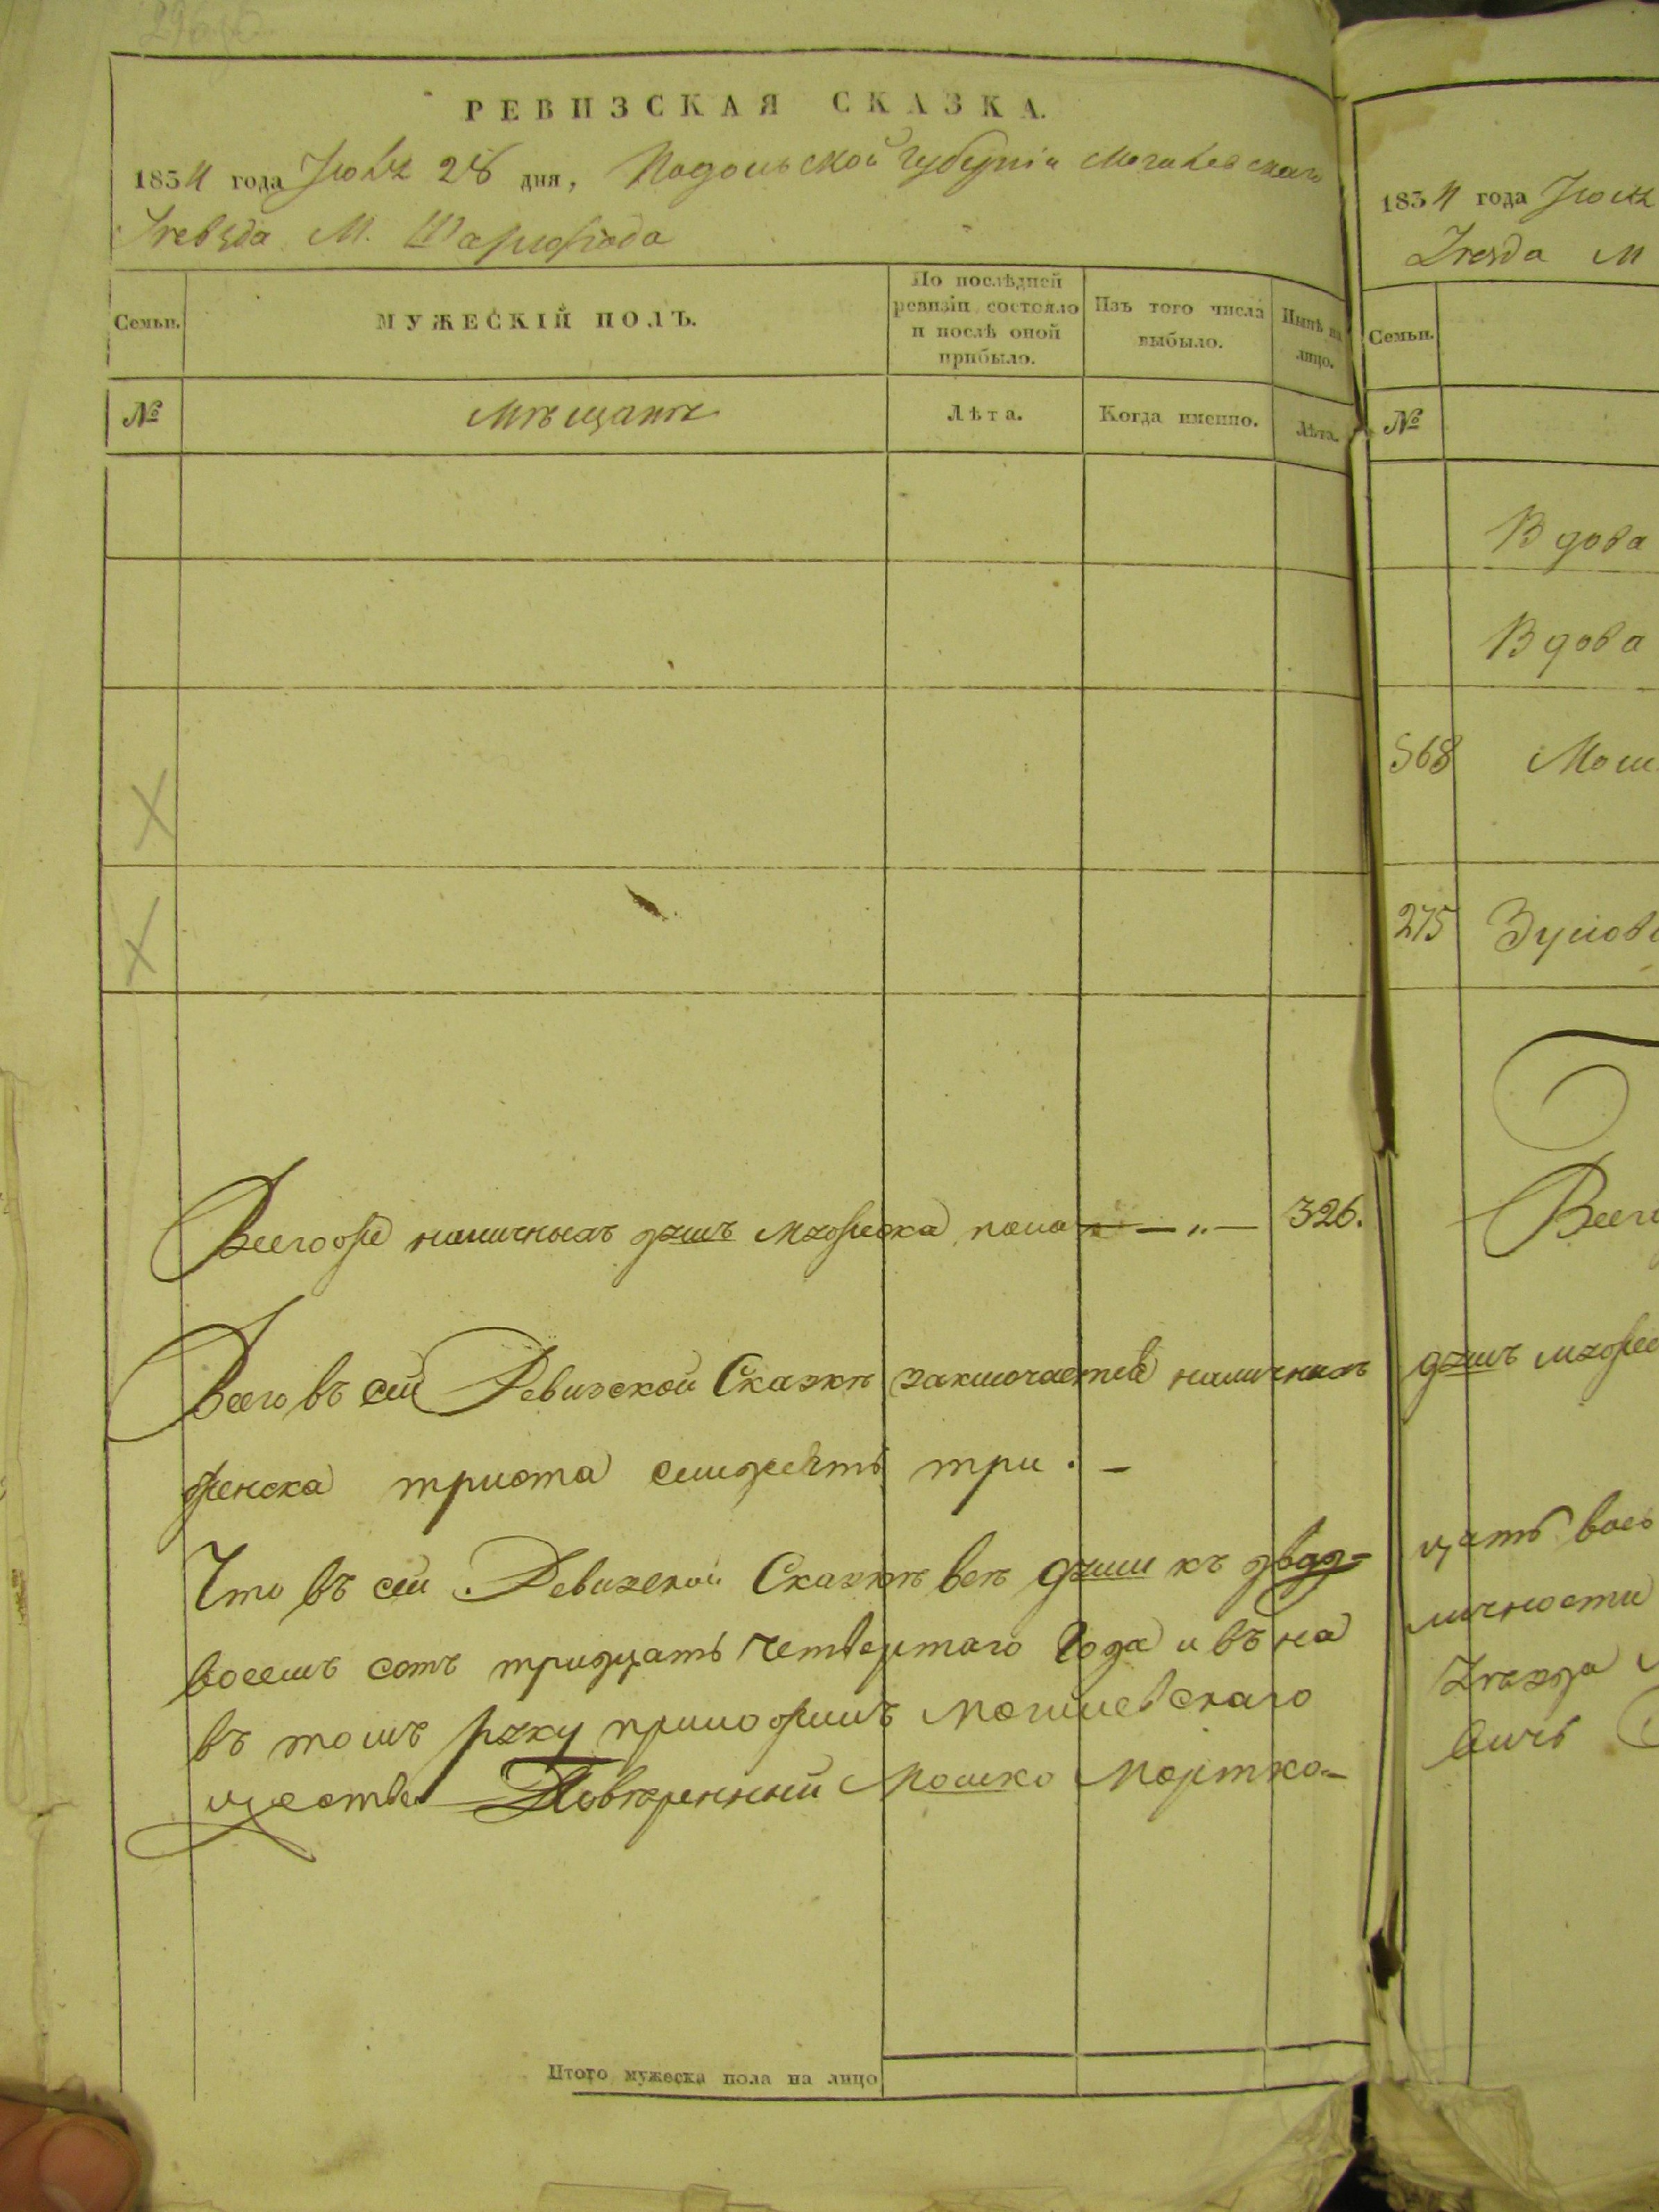 РЕВИЗСКАЯ СКАЗКА.
1834 года Іюля 28 дня, Подольской Губерніи Могилевскаго
Уезда М. Шаргрода
Семьи.
МУЖЕСКІЙ ПОЛЪ.
По послѣдней
ревизіи состояло
и послѣ оной
прибыло.
Изъ того числа
выбыло.
Нынѣ на
лицо.
№
Мѣщане
Лѣта.
Когда именно.
Лѣта.
Всегоже наличныхъ душъ мужеска пола 326.
Всего въ сей Ревизской Сказкѣ заключается наличныхъ
женска триста семдесятъ три.
Что въ сей Ревизской Сказкѣ всѣ души къ двад-
восемъ сотъ тридцать четвертаго Года и въ на
въ томъ руку приложилъ Могилевскаго
щества Повѣренный Мошко Мортко-
Итого мужеска пола на лицо
1834 года Іюля
Уезда М
Семьи.
№
Вдова
Вдова
568 Мош
275
Всего
душъ мужес
цать вось
личности
Уезда
вичъ